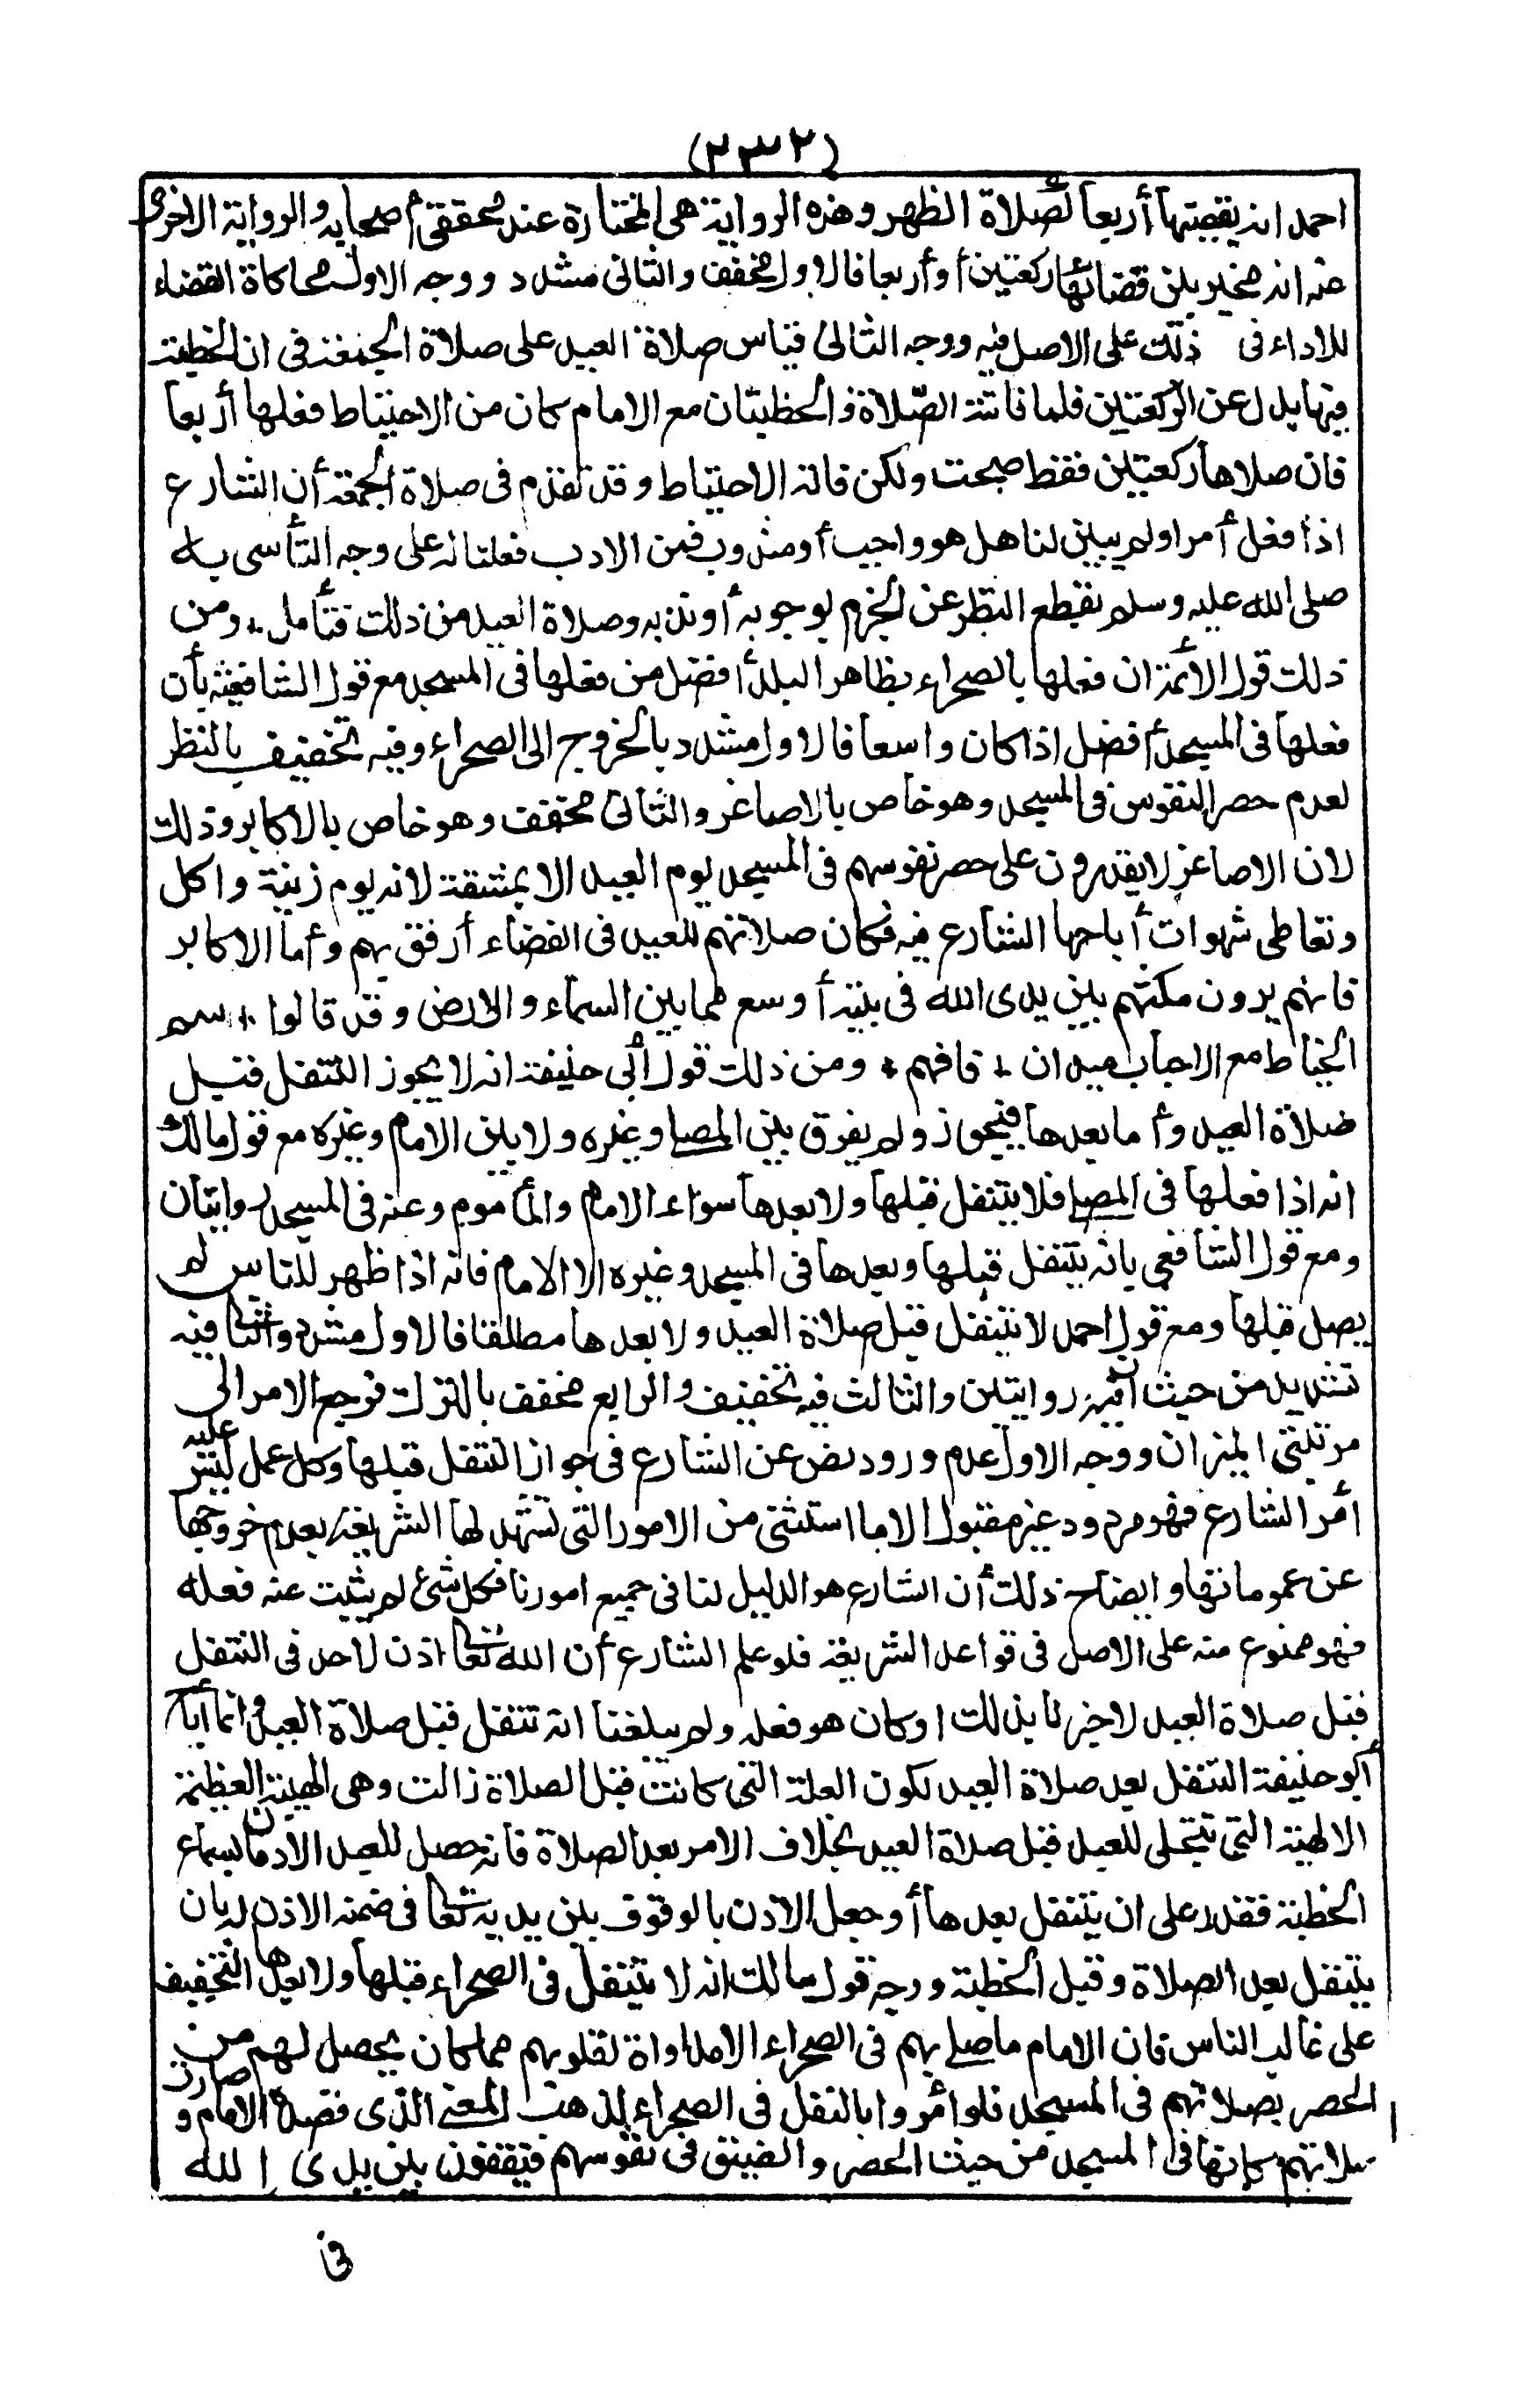 (٢٣٢)
احمد انه يقضيها أربعا لصلاة الظهر وهذه الرواية هى المختارة عند محققى أصحابه والرواية الاخرى
عنه انه مخير بين قضائها ركعتين أو أربعا فالاول مخفف والثانى مشدد ووجه الاول محاكاة القضاء
للاداء فى ذلك على الاصل فيه ووجه الثانى قياس صلاة العيد على صلاة الجمعة فى ان الخطبة
فيها بدل عن الركعتين فلما فاتته الصلاة والخطبتان مع الامام كان من الاحتياط فعلها أربعا
فان صلاها ركعتين فقط صحت ولكن فاته الاحتياط وقد تقدم فى صلاة الجمعة أن الشارع
اذا فعل أمرا ولم يبين لنا هل هو واجب أو مندوب فمن الادب فعلنا له على وجه التأسى به
صلى الله عليه وسلم بقطع النظر عن الجزم بوجوبه أو ندبه وصلاة العيد من ذلك فتأمل * ومن
ذلك قول الأئمة ان فعلها بالصحراء بظاهر البلد أفضل من فعلها فى المسجد مع قول الشافعية بأن
فعلها فى المسجد أفضل اذا كان واسعا فالاول مشدد بالخروج الى الصحراء وفيه تخفيف بالنظر
لعدم حصر النفوس فى المسجد وهو خاص بالاصاغر والثانى مخفف وهو خاص بالاكابر وذلك
لان الاصاغر لا يقدرون على حصر نفوسهم فى المسجد يوم العيد الا بمشقة لانه يوم زينة واكل
وتعاطى شهوات أباحها الشارع فيه فكان صلاتهم للعيد فى الفضاء أرفق بهم وأما الاكابر
فانهم يرون مكثهم بين يدى الله فى بيته أوسع مما بين السماء والارض وقد قالوا * سم
الخياط مع الاحباب ميدان * فافهم * ومن ذلك قول أبى حنيفة انه لا يجوز التنفل قبل
صلاة العيد وأما بعدها فيجوز ولم يفرق بين المصلى وغيره ولا بين الامام وغيره مع قول مالك
انه اذا فعلها فى المصلى فلا يتنفل قبلها ولا بعدها سواء الامام والمأموم وعنه فى المسجد روايتان
ومع قول الشافعى بانه يتنفل قبلها وبعدها فى المسجد وغيره الا الامام فانه اذا ظهر للناس لم
يصل قبلها ومع قول احمد لا يتنفل قبل صلاة العيد ولا بعدها مطلقا فالاول مشدد والثانى فيه
تشديد من حيث ان فيه روايتين والثالث فيه تخفيف والرابع مخفف بالترك فرجع الامر الى
مرتبتى الميزان ووجه الاول عدم ورود نص عن الشارع فى جواز التنفل قبلها وكل عمل ليس عليه
أمر الشارع فهو مردود غير مقبول الا ما استثنى من الامور التى تشهد لها الشريعة بعدم خروجها
عن عموماتها وايضاح ذلك أن الشارع هو الدليل لنا فى جميع امورنا فكل شئ لم يثبت عنه فعله
فهو ممنوع منه على الاصل فى قواعد الشريعة فلو علم الشارع أن الله تعالى اذن لاحد فى التنفل
قبل صلاة العيد لاخبرنا بذلك او كان هو فعله ولم يبلغنا انه تنفل قبل صلاة العيد وانما أباح
أبو حنيفة التنفل بعد صلاة العيد لكون العلة التى كانت قبل الصلاة زالت وهى الهيبة العظيمة
الالهية التى تتجلى للعبد قبل صلاة العيد بخلاف الامر بعد الصلاة فانه حصل للعبد الادمان بسماع
الخطبة فقدر على ان يتنفل بعدها أو جعل الاذن بالوقوف بين يديه تعالى فى ضمنه الاذن له بان
يتنفل بعد الصلاة وقبل الخطبة ووجه قول مالك انه لا يتنفل فى الصحراء قبلها ولا بعدها التخفيف
على غالب الناس فان الامام ما صلى بهم فى الصحراء الا مداواة لقلوبهم مما كان يحصل لهم من
الحصر بصلاتهم فى المسجد فلو أمروا بالنفل فى الصحراء لذهب المعنى الذى قصده الامام وصارت
صلاتهم كانها فى المسجد من حيث الحصر والضيق فى نفوسهم فيقفون بين يدى الله
فى